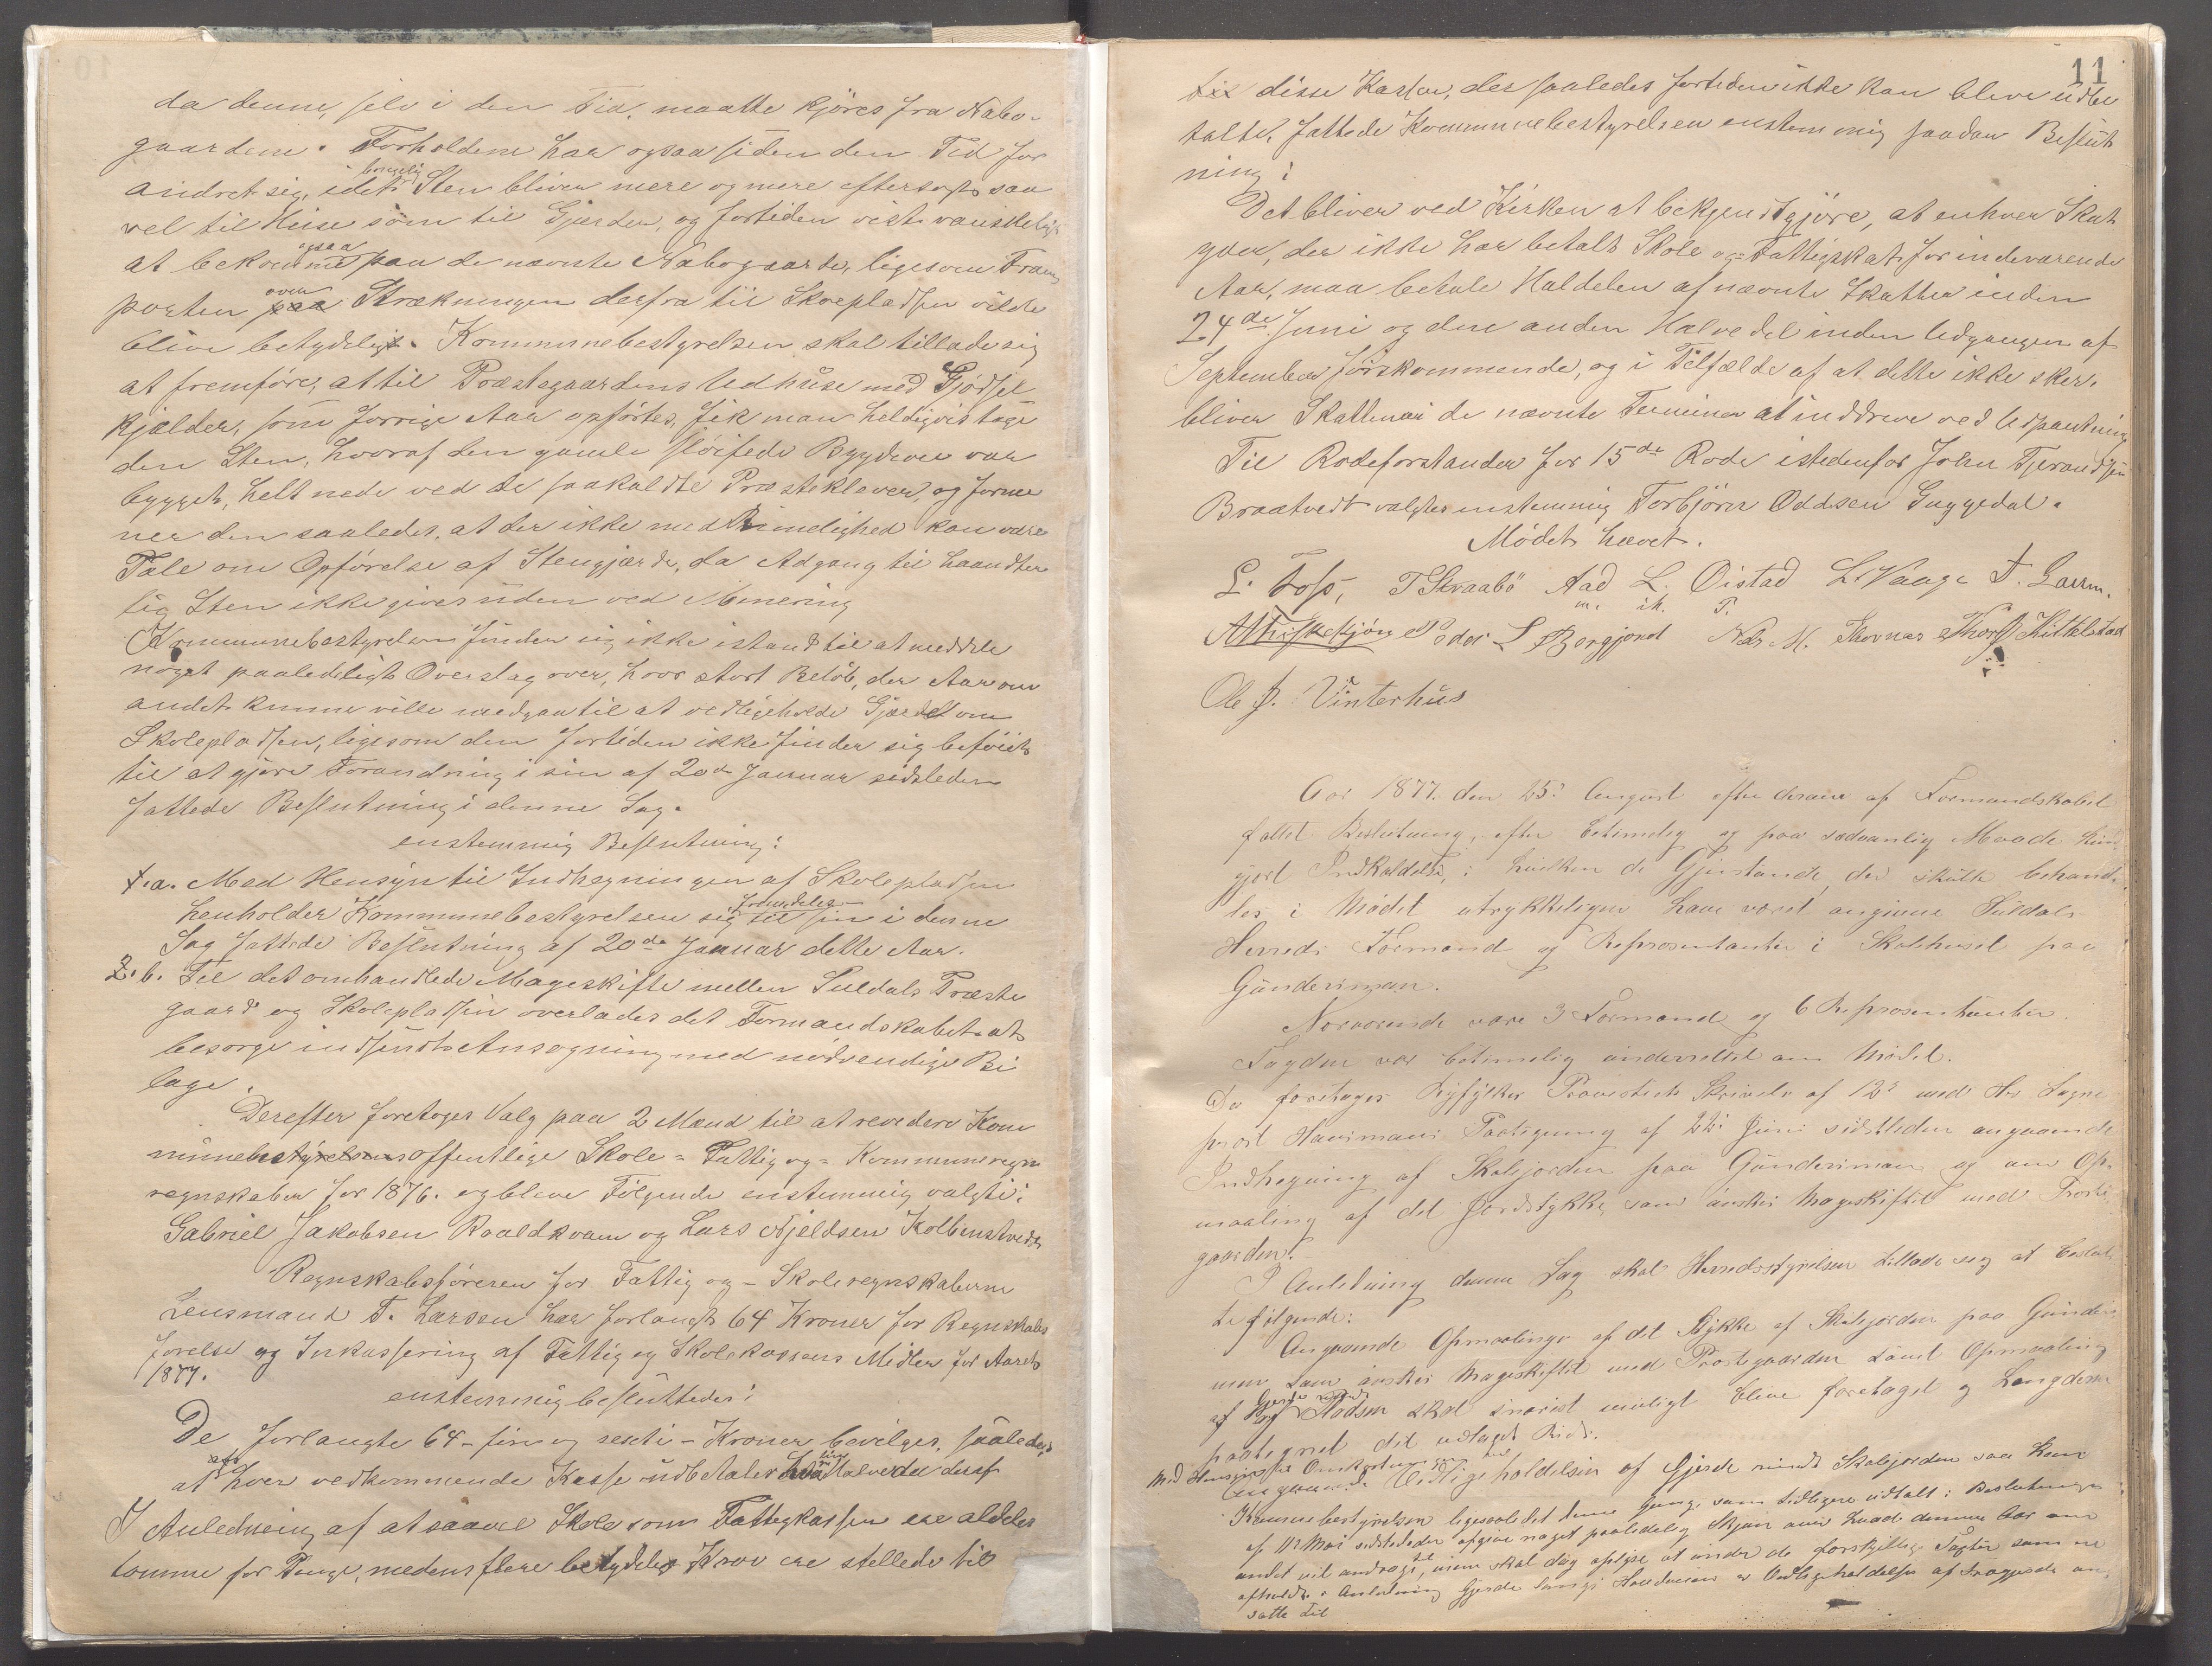 da denne, selv i den Tid, maatte kjöres fra Nabo-
gaardene. Forholdene har ogsaa siden den Tid for
andret sig, idet brugelig Sten bliver mere og mere eftersøgt, saa
vel til Huse som til Gjerder, og fortiden vist vanskeligt
at bekomme ogsaa paa de nævnte Nabogaarde, ligesom Trans
porten paa over Strækningen derfra til Skolepladsen vilde
blive betydelig. Kommunebestyrelsen skal tillade sig
at fremføre, at til Præstegaardens Udhuse med Gjødsel
kjælder, som forrige Aar opførtes, fik man heldigvis tage
den Sten, hvoraf den gamle sløifede Bygdevei var
bygget, helt nede ved de saakaldte Præstekløver, og forme
ner den saaledes, at der ikke med Rimelighed kan være
Tale om Opførelse af Stengjærde, da Adgang til haandter
lig Sten ikke gives uden ved Minering
Kommunebestyrelsen finder sig ikke istand til at meddele
noget paalideligt Overslag over, hvor stort Beløb, der Aar om
andet kunne ville medgaa til at vedligeholde Gjærdet om
Skolepladsen, ligesom den fortiden ikke finder sig beføiet
til at gjøre Forandring i sin af 20de Januar sidstleden
fattede Beslutning i denne Sag.
enstemmig Beslutning:
1.a. Med Hensyn til Indhegningen af Skolepladsen
henholder Kommunebestyrelsen sig fremdeles til sin i denne
Sag fattede Beslutning af 20de Januar dette Aar.
2.b. Til det omhandlede Mageskifte mellem Suldals Præste
gaard og Skolepladsen overlades det Formandskabet at
besørge indsendt Ansøgning med nødvendige Bi
lage.
Derefter foretoges Valg paa 2 Mænd til at revidere Kom
munebestyrelsens offentlige Skole- Fattig og- Kommuneregn
regnskaber for 1876. og bleve Følgende enstemmig valgte:
Gabriel Jakobsen Roaldkvam og Lars Kjeldsen Kolbenstvedt
Regnskabsføreren for Fattig og- Skoleregnskaberne
Lensmand T. Larsen har forlangt 64 Kroner for Regnskabs
førelse og Inkassering af Fattig og Skolekassens Midler for Aaret
1877.
enstemmig besluttedes:
De forlangte 64- fire og sexti- Kroner bevilges, saaledes
at hver vedkommende Kasse udbetaler Halvedel deraf
I Anledning af at saavel Skole som Fattigkassen ere aldeles
tomme for Penge, medens flere betydelige Krav ere stellede til
11
til disse Kasser, der saaledes fortiden ikke kan blive udbe
talte, fattede Kommunebestyrelsen enstemmig saadan Beslut
ning:
Det bliver ved Kirken at bekjendtgjöre, at enhver Skat
yder, der ikke har betalt Skole og- Fattigskat for indeværende
Aar, maa betale Haldelen af nævnte Skatter inden
24de Juni og den anden Halvedel inden Udgangen af
September førstkommende, og i Tilfælde af at dette ikke sker,
bliver Skatten i de nævnte Terminer at inddrive ved Udpantning
Til Rodeforstander for 15de Rode istedenfor John Tjerandsen
Braatvedt valgtes enstemmig Torbjörn Oddsen Guggedal.
Mödet hævet.
L. Foss, T Straabö Aad L. Öistad L. Vaage T. Larsen.
m. ih. P.
Peder L Bergjord Nels M. Thorf Kittelstad
Ole J. Vinterhus
Aar 1877. den 25de August efter derom af Formandskabet
fattet Beslutning, efter betimelig og paa sædvanlig Maade kund
gjort Indkaldelse, i hvilken de Gjenstande, der skulle behand-
les i Mødet utrykkeligen have været angivne Suldals
Herreds Formænd og Repræsentanter i Skolehuset paa
Gunderimoen.
Nærværende vare 3 Formænd og 6 Repræsentanter.
Fogden var betimelig underrettet om Mødet.
Da foretoges Ryfylkes Provsties Skrivelse af 12te med Hr. Sogne
prest Havimans Paategning af 22de Juni sidstleden angaaende
Indhegning af Skolejorden paa Gunderimoen og om Op-
maaling af det Jordstykke, som ønskes Mageskiftet med Præste
gaarden.
I Anledning denne Sag skal Herredsstyrelsen tillade sig at beslut
te følgende:
Angaaende Opmaalinge af det Stykke af Skolejorden paa Gunderi
moen som ønskes Mageskiftet med Præstegaarden samt Opmaaling
af Pladsen skal snarest muligt blive foretaget og Længderne
paategnet det udlagte Rids.
Med Hensyn til Omkostningerne ved
Angaaende Vedligeholdelsen af Gjerde rundt Skolejorden saa kan
Kommunebestyrelsen ligesaalidet denne Gang, som tidligere udtalt i Beslutninge
af Mai sidstleden afgive noget paalidelig Skjøn over hvad denne Aar om
andet vil andrage til, men skal dog oplyse at under de forskjellige Fagter som er
afholdt i Anledning Gjerde langs Hovedveien er Vedligeholdelse af Trægjerde an-
satte til